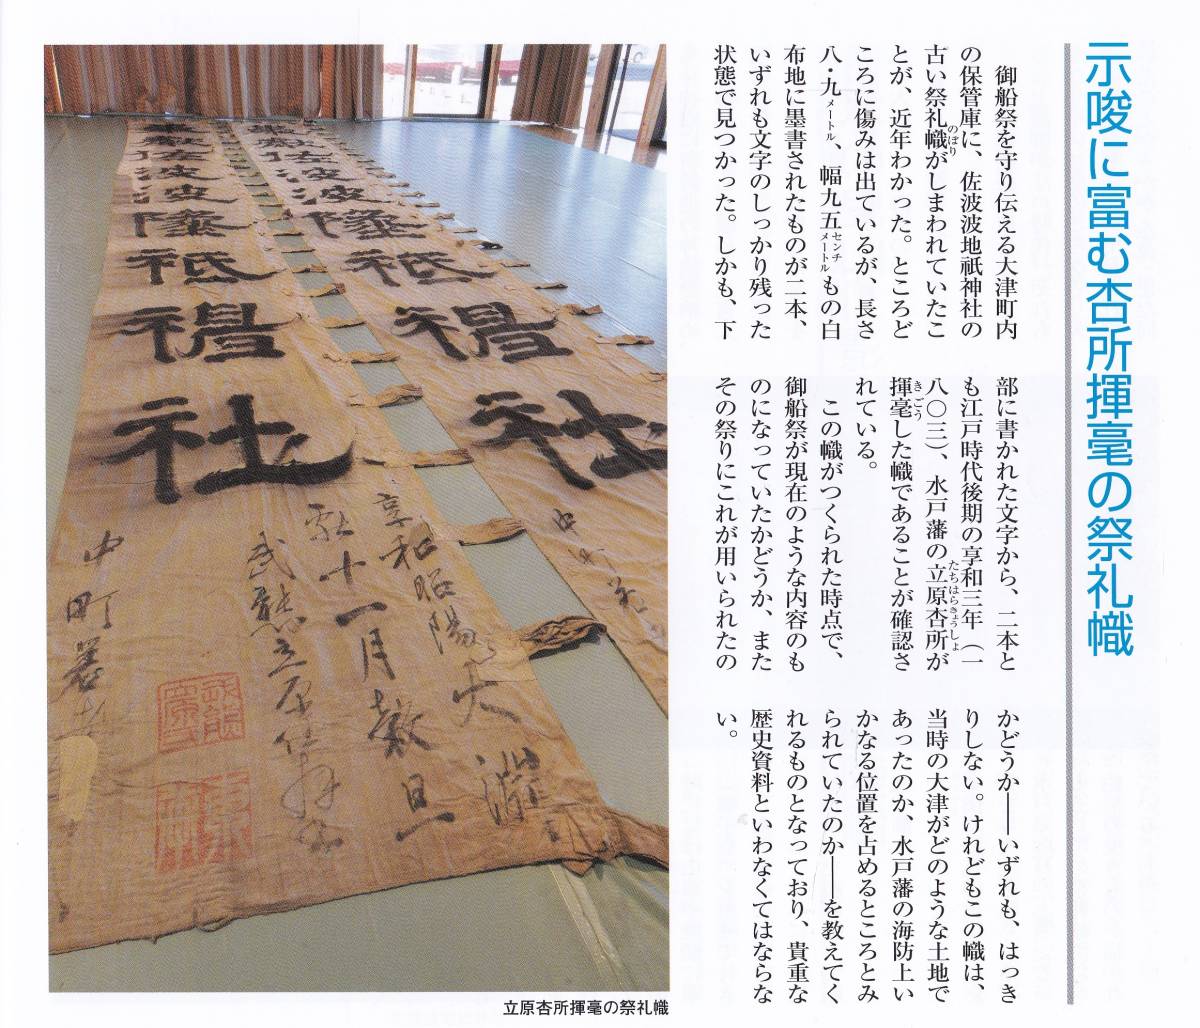 示唆に富む杏所揮毫の祭礼幟
御船祭を守り伝える大津町内
の保管庫に、佐波波地祇神社の
古い祭礼幟がしまわれていたこ
のぼり
とが、近年わかった。ところど
ころに傷みは出ているが、長さ
八・九メートル、幅九五センチメートルもの白
布地に墨書されたものが二本、
いずれも文字のしっかり残った
状態で見つかった。しかも、下
部に書かれた文字から、二本と
も江戸時代後期の享和三年（一
八〇三）、水戸藩の立原杏所が
たちはらきょうしょ
揮毫した幟であることが確認さ
きごう
れている。
この幟がつくられた時点で、
御船祭が現在のような内容のも
のになっていたかどうか、また
その祭りにこれが用いられたの
かどうか——いずれも、はっき
りしない。けれどもこの幟は、
当時の大津がどのような土地で
あったのか、水戸藩の海防上い
かなる位置を占めるところとみ
られていたのか——を教えてく
れるものとなっており、貴重な
歴史資料といわなくてはならな
い。
佐波波
祇
社
佐波波
祇
社
享和昭陽大
十一月穀旦
武熊立原
中町
中町
立原杏所揮毫の祭礼幟